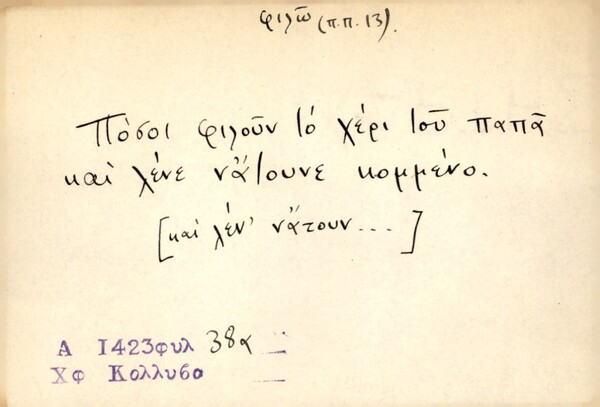 φιλῶ (π.π. 13).
Πόσοι φιλοῦν τό χέρι τοῦ παπᾶ
καί λένε νἄτουνε κομμένο.
[καί λέν' νἄτουν...]
Α 1423φυλ 38α
Χφ Κολλυβα